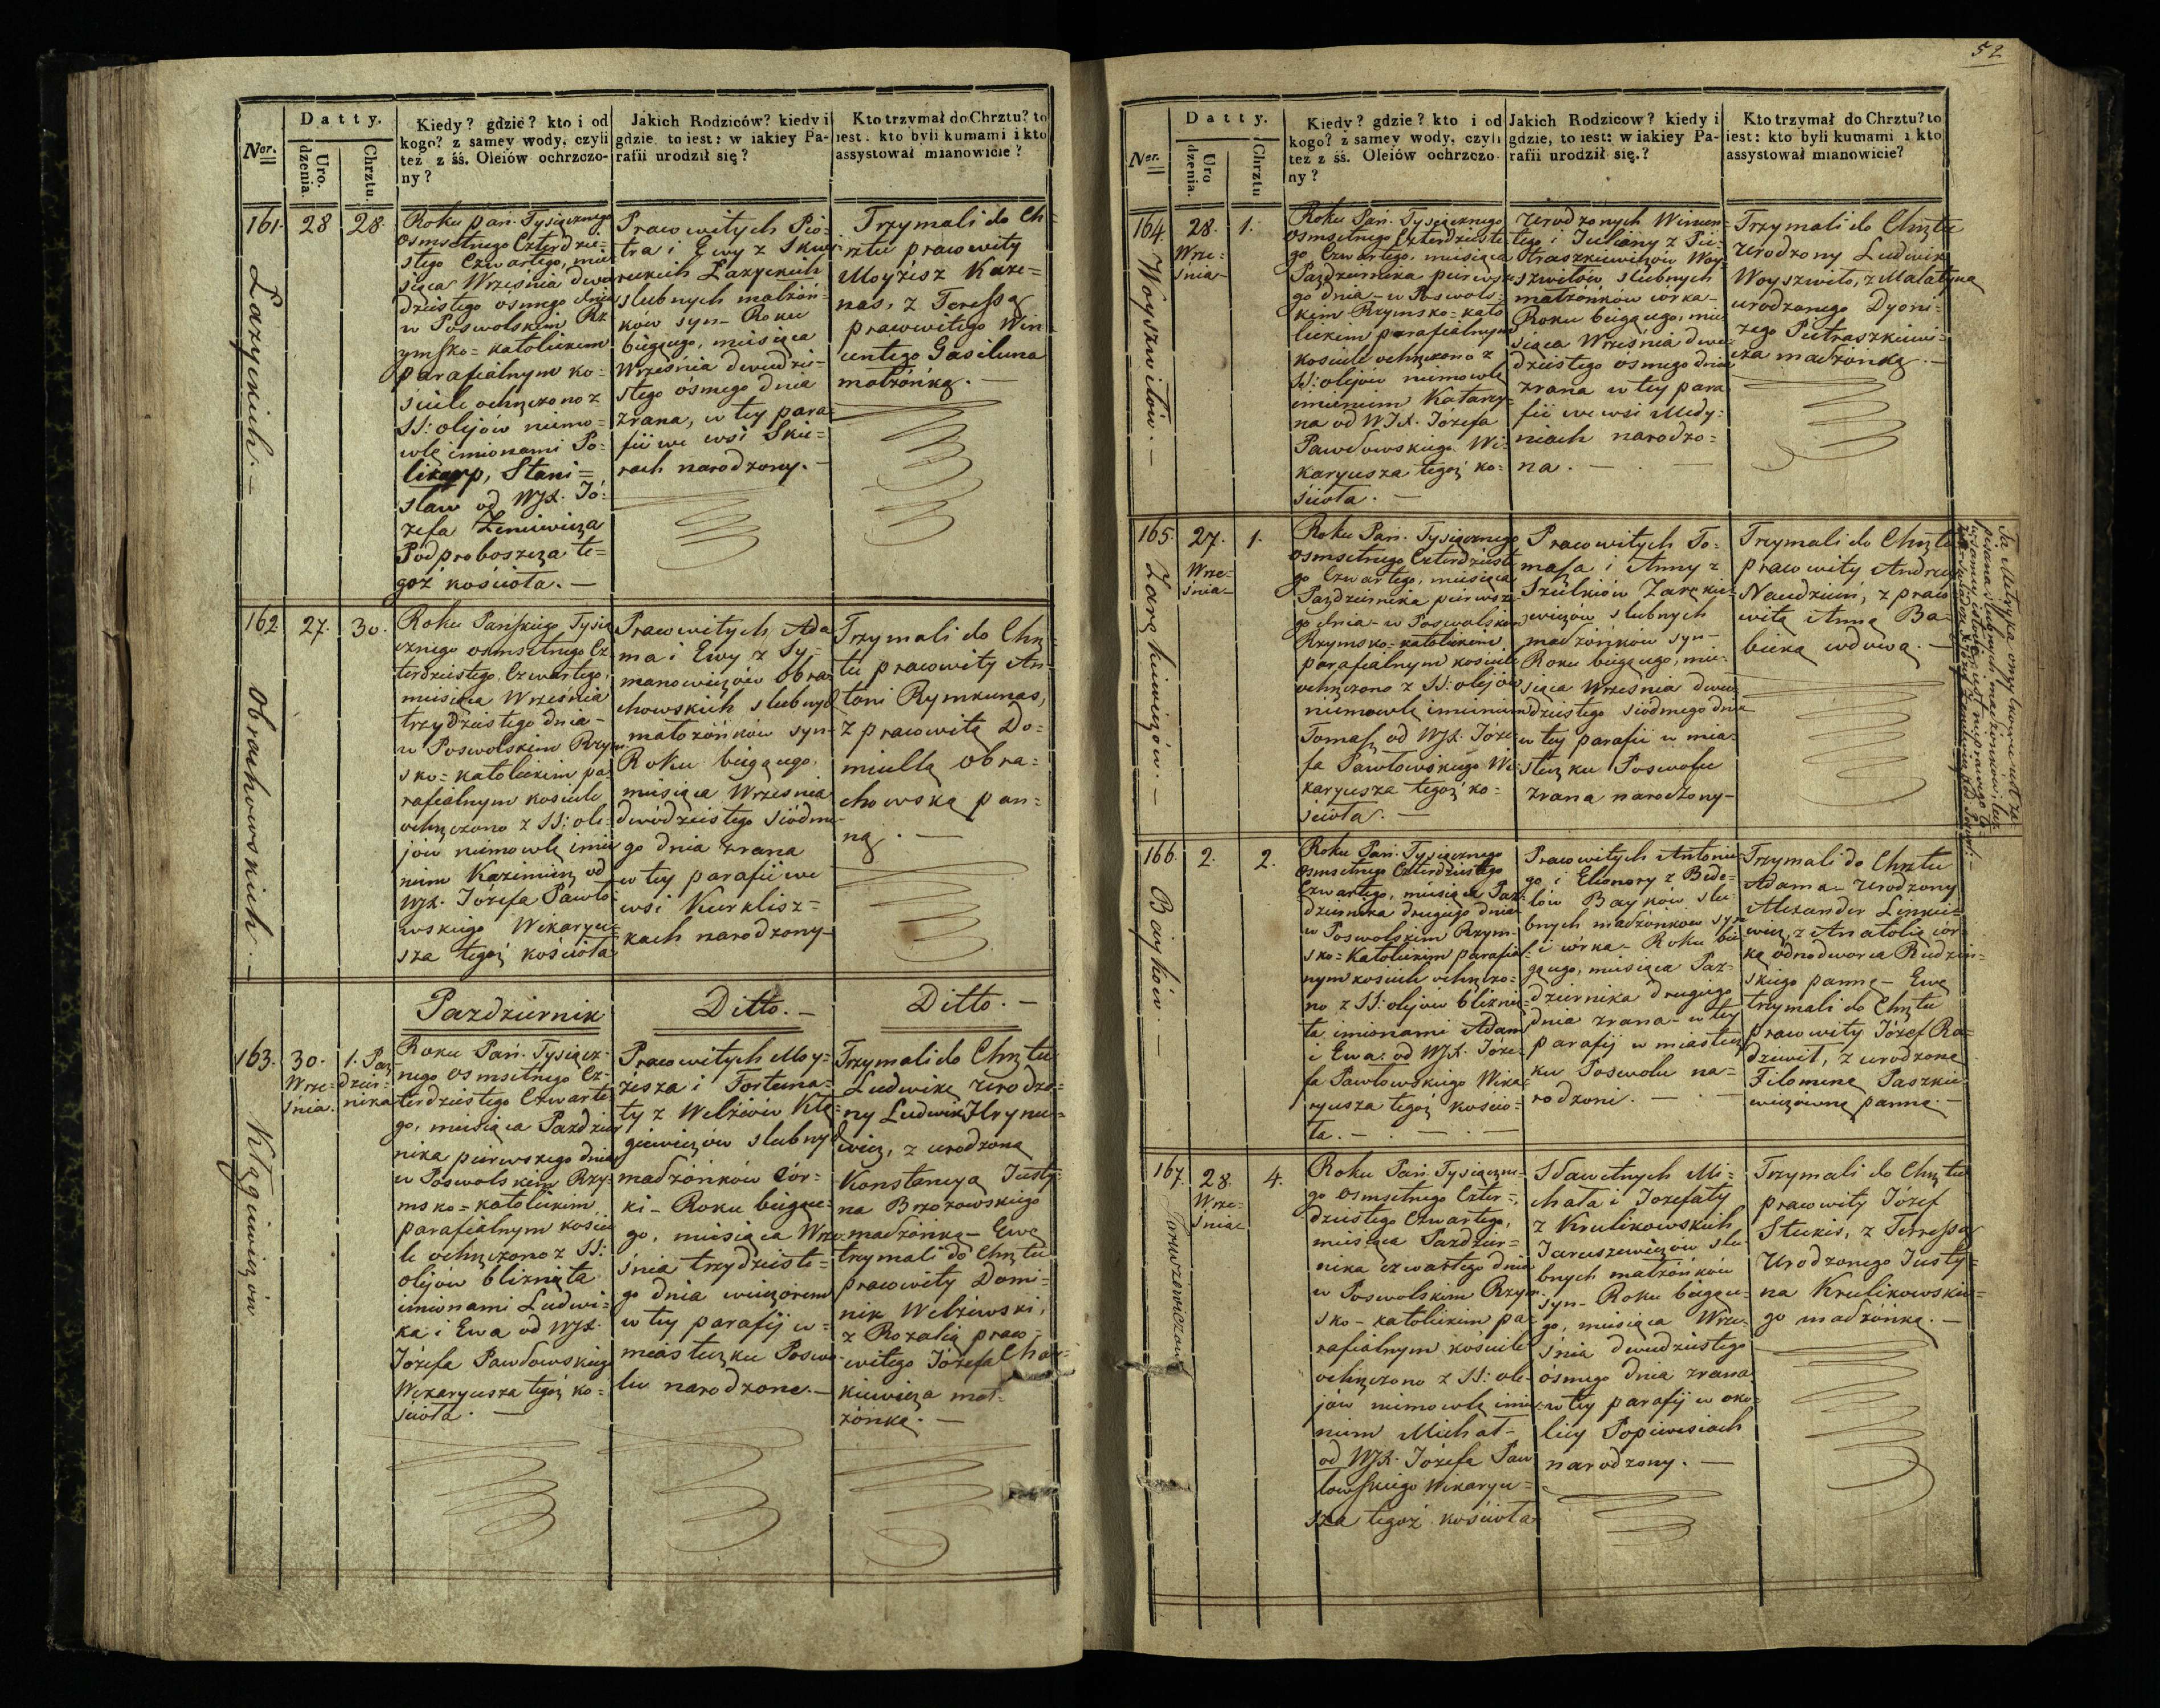 Nor.
Datty.
Uro. dzenia.
Chrztu.
Kiedy? gdzie? kto i od
kogo? z samey wody, czyli
też z śś. Oleiów ochrzczo-
ny?
Jakich Rodziców? kiedy i
gdzie, to iest: w iakiey Pa-
rafii urodził się?
Kto trzymał do Chrztu? to
iest. kto byli kumami i kto
assystował mianowicie?
161.
28
28.
Łazyckich. —
Roku Pań. Tysiącznego
Osmsetnego Czterdzie-
stego Czwartego, mie
siąca Września dwu
dziestego osmego dnia
w Poswolskim Rz
ymsko=katolickim
parafialnym ko=
ściele ochrzczono z
SS: olejów niemo=
wlę imionami Po-
likarp, Stani=
sław od WJX. Jó-
zefa Zeniewicza
Podproboszcza te=
goż kościoła. —
Prawowitych Pio-
tra i Ewy z Skwe
reckich Łazyckich
slubnych małżon-
ków syn — Roku
biegącego, miesiąca
Września dwudzie-
stego ósmego dnia
zrana, w tey para-
fii we wsi Skie=
rach narodzony. —
Trzymali do Ch=
rztu prawowity
Moyżesz Kaze=
nas, z Teressą
prawowitego Win
centego Gasiluna
małżonką. —
162
27.
30.
Obrachowskich. —
Roku Pańskiego Tysią
cznego osmsetnego Cz
terdziestego Czwartego,
miesiąca Września
trzydziestego dnia —
w Poswolskim Rzym
sko=katolickim pa
rafialnym kościele
ochrzczono z SS: ole-
jów niemowlę imie
niem Kazimierz od
WJX. Józefa Pawło
wskiego Wikaryu-
sza tegoż kościoła
Prawowitych Ada
ma i Ewy z Sy=
manowiczów Obra
chowskich slubnych
małożonków syn —
Roku biegącego,
miesiąca Września
dwódziestego siódme
go dnia zrana
w tey parafii we
wsi Kurklisz=
kach narodzony —
Trzymali do Chrz=
tu prawowity An
toni Rymkunas,
z prawowitą Do=
micellą Obra=
chowską pan=
ną. —
Pazdziernik
Ditto. —
Ditto. —
163.
30.
Wrze-
śnia.
1. Paz
dzier-
nika
Kłągiewiczów
Roku Pań. Tysiącz-
nego Osmsetnego Cz-
terdziestego Czwarte
go, miesiąca Pazdzier
nika pierwszego dnia
w Poswolskim Rzy-
msko=katolickim
parafialnym koście
le ochrzczono z SS:
olejów blizniąta
imionami Ludwi=
ka i Ewa od WJX.
Józefa Pawłowskiego
Wikaryusza tegoż ko=
ścioła. —
Prawowitych Moy=
żesza i Fortuna=
ty z Welżiów Kłą=
giewiczów slubnych
małżonków cór=
ki — Roku biegące-
go, miesiąca Wrze
śnia trzydzieste=
go dnia wieczorem
w tey parafij w=
miasteczku Poswo
lu narodzone. —
Trzymali do Chrztu
Ludwikę Urodzo=
ny Ludwik Hrynie-
wicz, z urodzoną
Konstancyą Justy-
na Brzozowskiego
małżonką — Ewę
trzymali do Chrztu
prawowity Domi=
nik Welżiewski,
z Rozalią prawo-
witego Józefa
kiewicza mał-
żonką. —
52
Nor.
Datty.
Uro dzenia.
Chrztu
Kiedy? gdzie? kto i od
kogo? z samey wody, czyli
też z śś. Oleiów ochrzczo-
ny?
Jakich Rodziców? kiedy i
gdzie, to iest: w iakiey Pa-
rafii urodził się.?
Kto trzymał do Chrztu? to
iest: kto byli kumami i kto
assystował mianowicie?
164.
28.
Wrze-
śnia
1.
Woyszwiłow. —
Roku Pań. Tysiącznego
Osmsetnego Czterdzieste
go Czwartego, miesiąca
Pazdziernika pierwsze
go dnia — w Poswols=
kim Rzymsko=kato
lickim parafialnym
kościele ochrzczono z
SS: olejów niemowlę
imieniem Katarzy-
na od WJX. Józefa
Pawłowskiego Wi-
karyusza tegoż ko=
ścioła. —
Urodzonych Wincen-
tego i Juliany z Pie-
traszkiewiczow Woy
szwiłów, slubnych
małżonków córka —
Roku biegącego, mie
siąca Września dwu
dziestego ósmego dnia
zrana w tey para
fii we wsi Medy-
niach narodzo=
na. —
Trzymali do Chrztu
Urodzony Ludwik
Woyszwiło, z Małatyną
urodzonego Dyoni-
zego Pietraszkiewi-
cza małżonką. —
165.
27.
Wrze-
śnia
1.
Zaręckiewiczów. —
Roku Pań. Tysiącznego
Osmsetnego Czterdzieste
go Czwartego, miesiąca
Pazdziernika pierwsze
go dnia — w Poswolskim
Rzymsko-katolickim
parafialnym kościele
ochrzczono z SS: olejów
niemowlę imieniem
Tomasz od WJX. Józe-
fa Pawłowskiego Wi-
karyusza tegoż ko-
ścioła. —
Prawowitych To-
masza i Anny z
Szulciów Zaręckie-
wiczów slubnych
małżonków syn —
Roku biegącego, mie-
siąca Września dwu
dziestego siódmego dnia
w tey parafii w mia-
steczku Poswolu
zrana narodzony —
Trzymali do Chrztu
prawowity Andrzey
Naudziun, z prawo
witą Anną Ba-
bicką wdową. —
166.
2.
2.
Bayków. —
Roku Pań. Tysiącznego
Osmsetnego Czterdziestego
Czwartego, miesiąca Paz
dziernika drugiego dnia
w Poswolskim Rzym-
sko=Katolickim parafial-
nym kościele ochrzczo-
no z SS: olejów bliznię-
ta imionami Adam
i Ewa: od WJX. Józe-
fa Pawłowskiego Wika
ryusza tegoż kościo-
ła. —
Prawowitych Antonie
go i Elionory z Bede-
lów Bayków slu-
bnych małżonków syn
i córka — Roku bie
gącego, miesiąca Paz-
dziernika drugiego
dnia zrana — w tey
parafij w miastecz
ku Poswolu na=
rodzeni. —
Trzymali do Chrztu
Adama — Urodzony
Alexander Linkie-
wicz, z Anatolią cór-
ką odnodworca Rudzin=
skiego panną — Ewę
trzymali do Chrztu
prawowity Józef Ra=
dzewit, z urodzoną
Filomeną Paszkie-
wiczówną panną. —
167.
28.
Wrze-
śnia
4.
Jaruszewiczow
Roku Pań. Tysiączne-
go Osmsetnego Czter-
dziestego Czwartego,
miesiąca Pazdzier=
nika czwartego dnia
w Poswolskim Rzym
sko-katolickim pa-
rafialnym kościele
ochrzczono z SS: ole-
jów niemowlę imie-
niem Michał —
od WJX. Józefa Paw
łowskiego Wikaryu=
sza tegoż kościoła
Sławetnych Mi=
chała i Jozefaty
z Krulikowskich
Jaruszewiczów slu
bnych małżonków
syn — Roku biegące-
go, miesiąca Wrze-
śnia dwudziestego
ósmego dnia zrana
w tey parafij w oko-
licy Popiewiesiach
narodzony. —
Trzymali do Chrztu
prawowity Józef
Stukis, z Terressą
Urodzonego Justy=
na Krulikowskie=
go małżonką. —